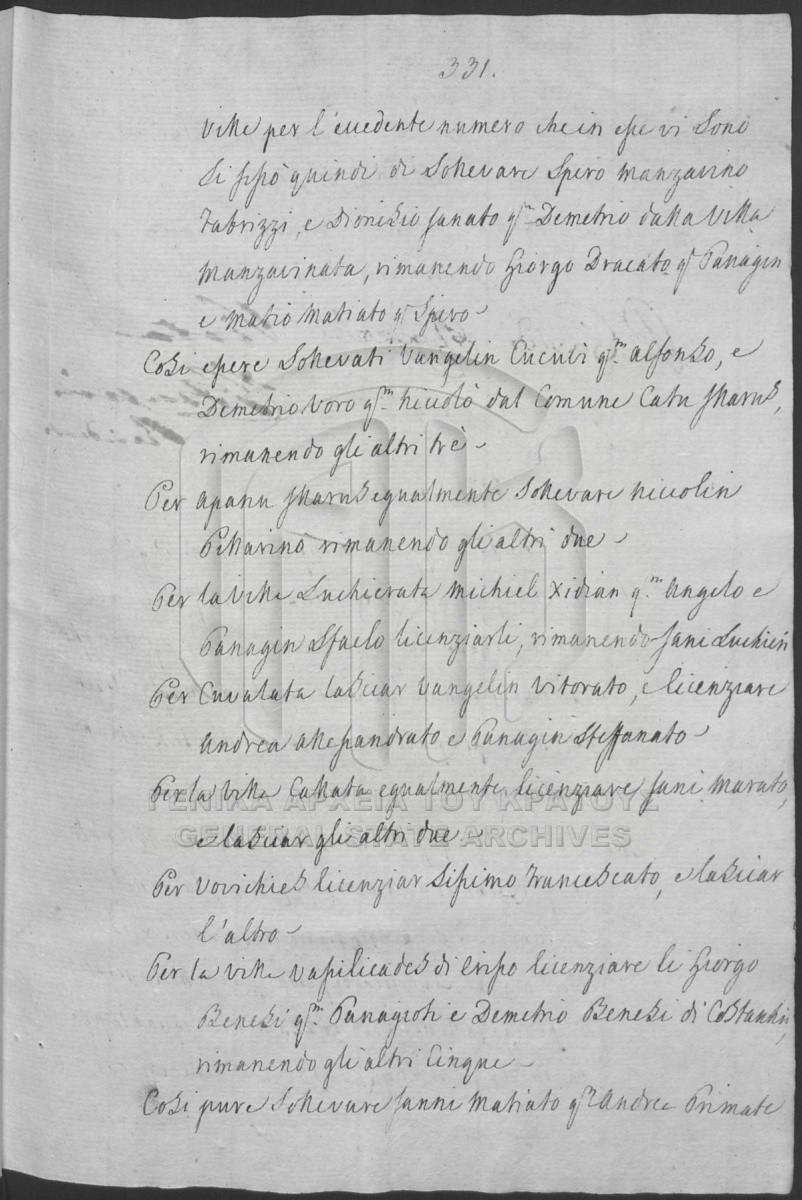 331.
ville per l'eccedente numero che in esse vi sono
si fissò quindi di sollevare Spiro Manzavino
Fabrizzi, e Dionisio Janato qm Demetrio dalla Villa
Manzavinata, rimanendo Giorgo Dracato q Panagin
e Matio Matiato q Spiro
Così essere sollevati Vangelin Cucubi qm Alfonso, e
Demetrio Voro qm Niccolò dal Comune Catu
rimanendo gli altri trè
Per Apanu egualmente sollevare Niccolin
Pillarino rimanendo gli altri due
Per la Villa Luchierata Michiel Xidian qm Angelo e
Panagin Sfaelo licenziarli, rimanendo Jani Luchieri
Per Cuvalata lasciar Vangelin Vitorato, e licenziare
Andrea Alessandrato e Panagin Steffanato
Per la Villa Callata egualmente licenziare Jani Marato,
e lasciar gli altri due
Per Vovichies licenziar Sissimo Francescato, e lasciar
l'altro
Per la villa Vassilicades di Erisso licenziare li Giorgo
Benesi qm Panagioti e Demetrio Benesi di Costantin,
rimanendo gli altri Cinque
Così pure sollevare Janni Matiato qm Andrea Primate
ΓΕΝΙΚΑ ΑΡΧΕΙΑ ΤΟΥ ΚΡΑΤΟΥΣ
GENERAL STATE ARCHIVES